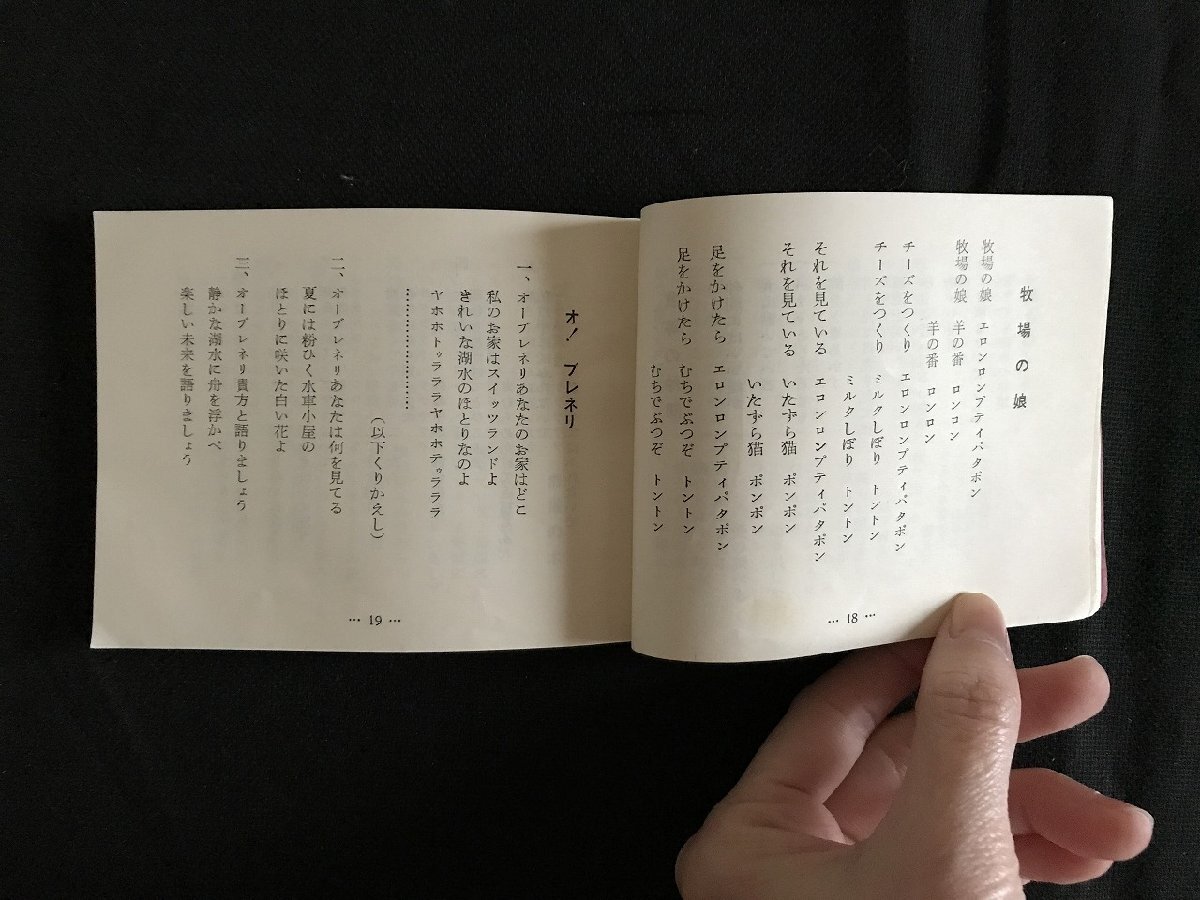 牧場の娘
牧場の娘 エロンロンプティパタポン
牧場の娘 羊の番 ロンロン
羊の番 ロンロン
チーズをつくり エロンロンプティパタポン
チーズをつくり ミルクしぼり トントン
ミルクしぼり トントン
それを見ている エロンロンプティパタポン
それを見ている いたずら猫 ポンポン
いたずら猫 ポンポン
足をかけたら エロンロンプティパタポン
足をかけたら むちでぶつぞ トントン
むちでぶつぞ トントン
… 18 …
オ! ブレネリ
一、オーブレネリあなたのお家はどこ
私のお家はスイッツランドよ
きれいな湖水のほとりなのよ
ヤホホトゥラララヤホホテゥラララ
……………………
(以下くりかえし)
二、オーブレネリあなたは何を見てる
夏には粉ひく水車小屋の
ほとりに咲いた白い花よ
三、オーブレネリ貴方と語りましょう
静かな湖水に舟を浮かべ
楽しい未来を語りましょう
… 19 …